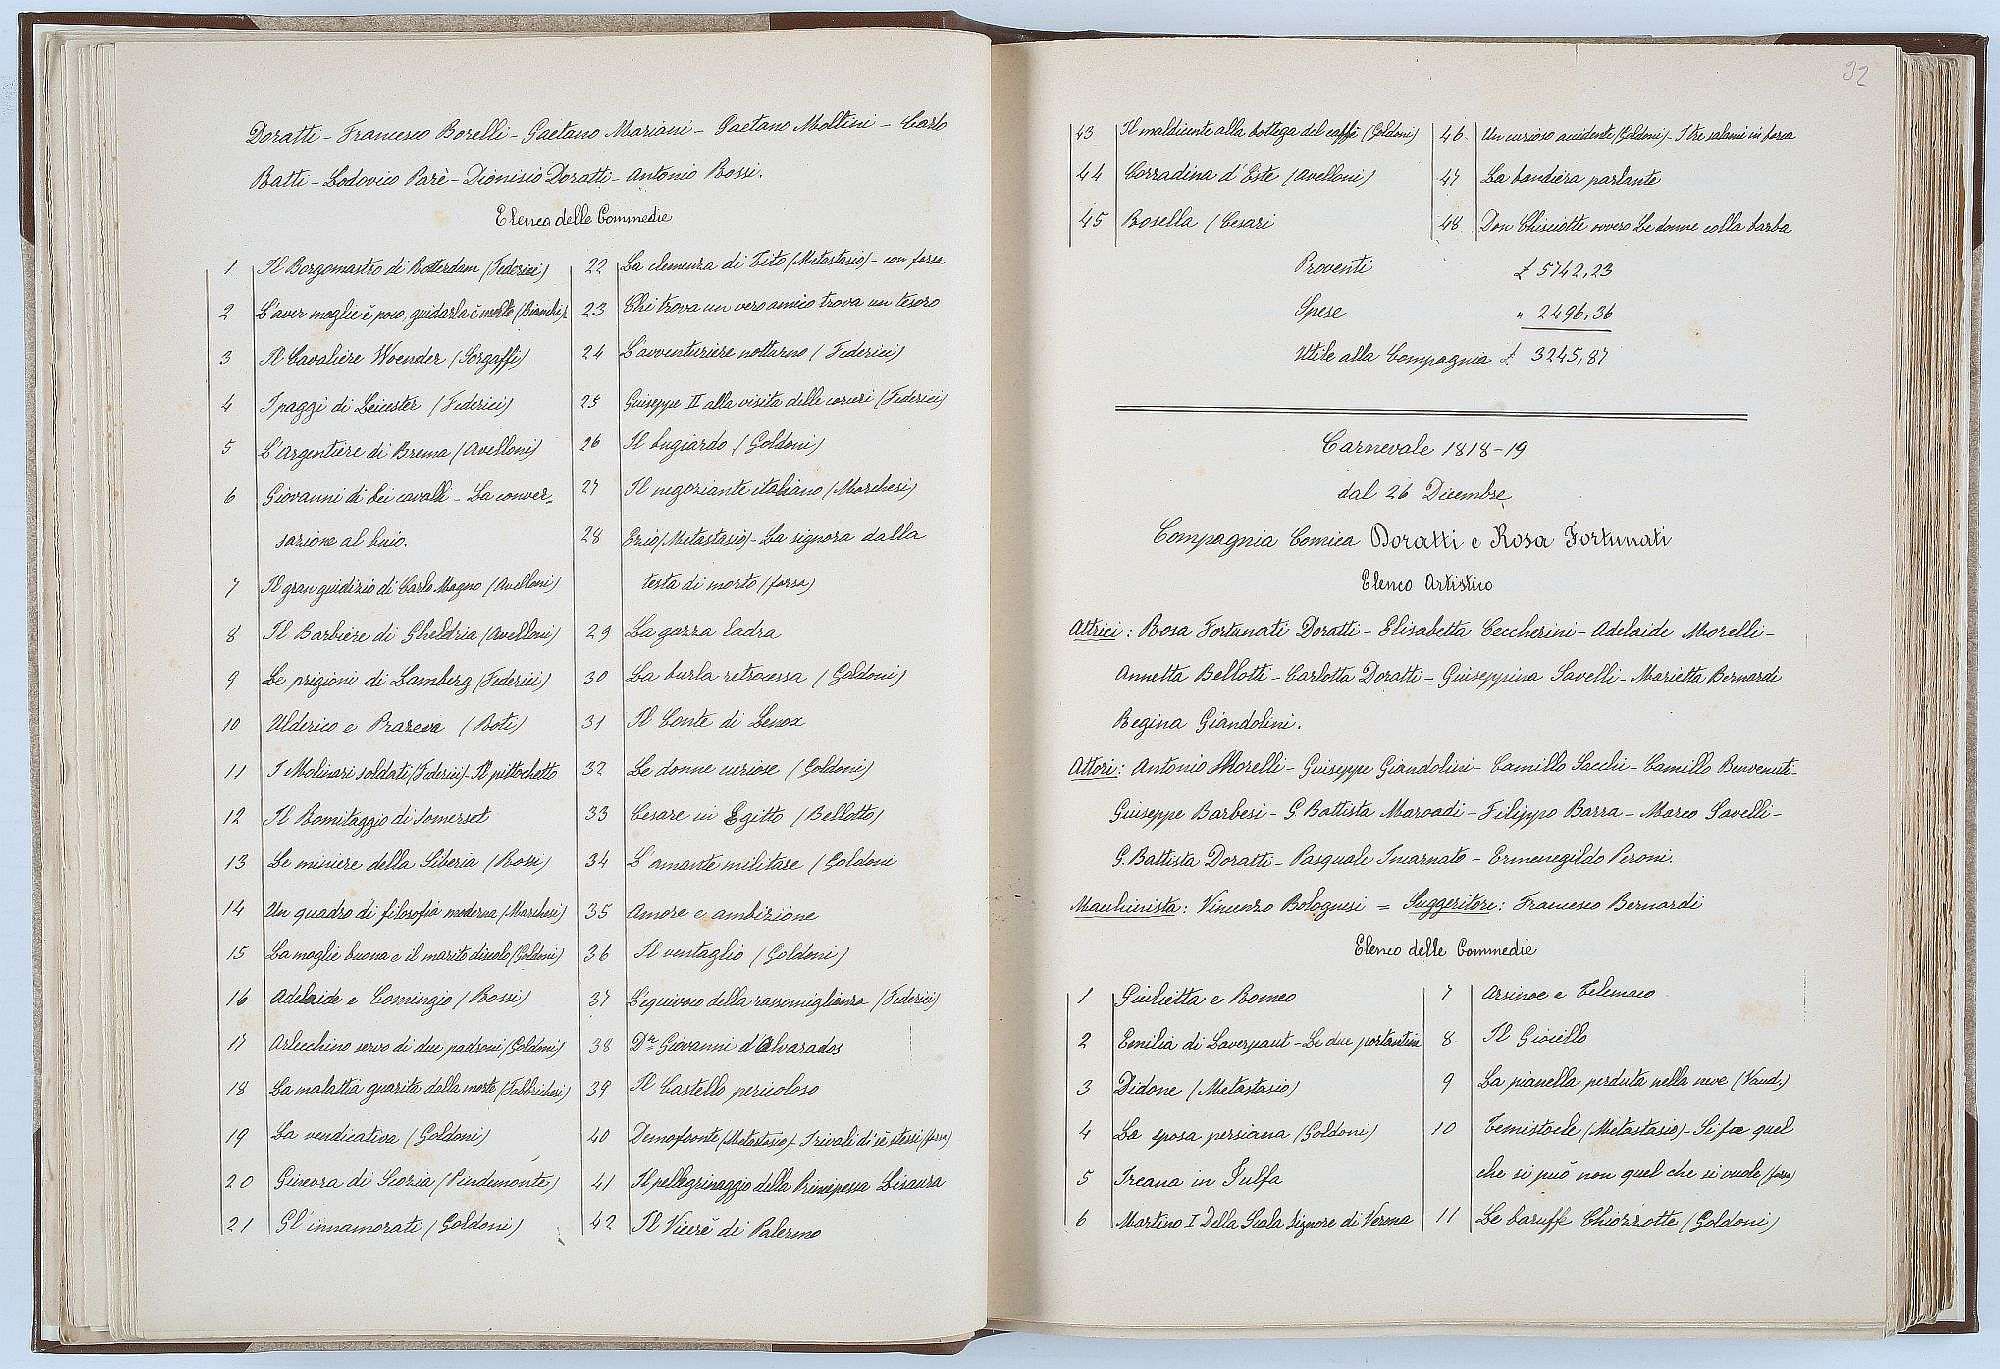 Doratti - Francesco Borelli - Gaetano Mariani - Gaetano Moltini - Carlo
Batti - Lodovico Parè - Dionisio Doratti - Antonio Rossi.
Elenco delle Commedie
1 Il Borgomastro di Rotterdam (Federici)
2 L'aver moglie è poco, guidarla è molto (Bianchi)
3 Il Cavaliere Woender (Sorgaffi)
4 I paggi di Leicester (Federici)
5 L'Argentiere di Brema (Avelloni)
6 Giovanni di bei cavalli - La conver-
sazione al buio.
7 Il gran giudizio di Carlo Magno (Avelloni)
8 Il Barbiere di Gheldria (Avelloni)
9 Le prigioni di Lamberg (Federici)
10 Ulderico e (Boti)
11 I Molinari soldati (Federici) - Il pittochetto
12 Il Romitaggio di Somerset
13 Le miniere della Siberia (Rossi)
14 Un quadro di filosofia moderna (Marchesi)
15 La moglie buona e il marito discolo (Goldoni)
16 Adelaide e Comingio (Rossi)
17 Arlecchino servo di due padroni (Goldoni)
18 La malattia guarita dalla morte (Fabbrichesi)
19 La vendicativa (Goldoni)
20 Ginevra di Scozia (Pindemonte)
21 Gl'innamorati (Goldoni)
22 La clemenza di Tito (Metastasio) - con farsa
23 Chi trova un vero amico trova un tesoro
24 L'avventuriere notturno (Federici)
25 Giuseppe II alla visita delle carceri (Federici)
26 Il bugiardo (Goldoni)
27 Il negoziante italiano (Marchesi)
28 Ezio (Metastasio) - La signora dalla
testa di morto (farsa)
29 La gazza ladra
30 La burla retrocessa (Goldoni)
31 Il Conte di Lenox
32 Le donne curiose (Goldoni)
33 Cesare in Egitto (Bellotto)
34 L'amante militare (Goldoni
35 Amore e ambizione
36 Il ventaglio (Goldoni)
37 L'equivoco della rassomiglianza (Federici)
38 Dn Giovanni d'Alvarados
39 Il Castello pericoloso
40 Demofoonte (Metastasio) - I rivali di sè stessi (farsa)
41 Il pellegrinaggio della Principessa Lisaura
42 Il Vicerè di Palermo
92
43 Il maldicente alla bottega del caffè (Goldoni)
44 Corradina d'Este (Avelloni)
45 Rosella (Cesari
46 Un curioso accidente (Goldoni) - I tre salami in barca
47 La bandiera parlante
48 Don Chisciotte ovvero Le donne colla barba
Proventi £ 5742,23
Spese " 2496,36
Utile alla Compagnia £ 3245,87
Carnevale 1818-19
dal 26 Dicembre
Compagnia Comica Doratti e Rosa Fortunati
Elenco Artistico
Attrici: Rosa Fortunati Doratti - Elisabetta Ceccherini - Adelaide Morelli -
Annetta Bellotti - Carlotta Doratti - Guiseppina Savelli - Marietta Bernardi
Regina Giandolini.
Attori: Antonio Morelli - Guiseppe Giandolini - Camillo Sacchi - Camillo Benvenuti -
Guiseppe Barbesi - G. Battista Marvadi - Filippo Barra - Marco Savelli -
G. Battista Doratti - Pasquale Incarnato - Ermenegildo Peroni.
Macchinista: Vincenzo Bolognesi = Suggeritore: Francesco Bernardi
Elenco delle Commedie
1 Giulietta e Romeo
2 Emilia di Laverpaut - Le due portantine
3 Didone (Metastasio)
4 La sposa persiana (Goldoni)
5 Ircana in Julfa
6 Martino I Della Scala Signore di Verona
7 Arsinoe e Telemaco
8 Il Gioiello
9 La pianella perduta nella neve (Vaud.)
10 Temistocle (Metastasio) - Si fa quel
che si può non quel che si vuole (farsa)
11 Le baruffe Chiozzotte (Goldoni)